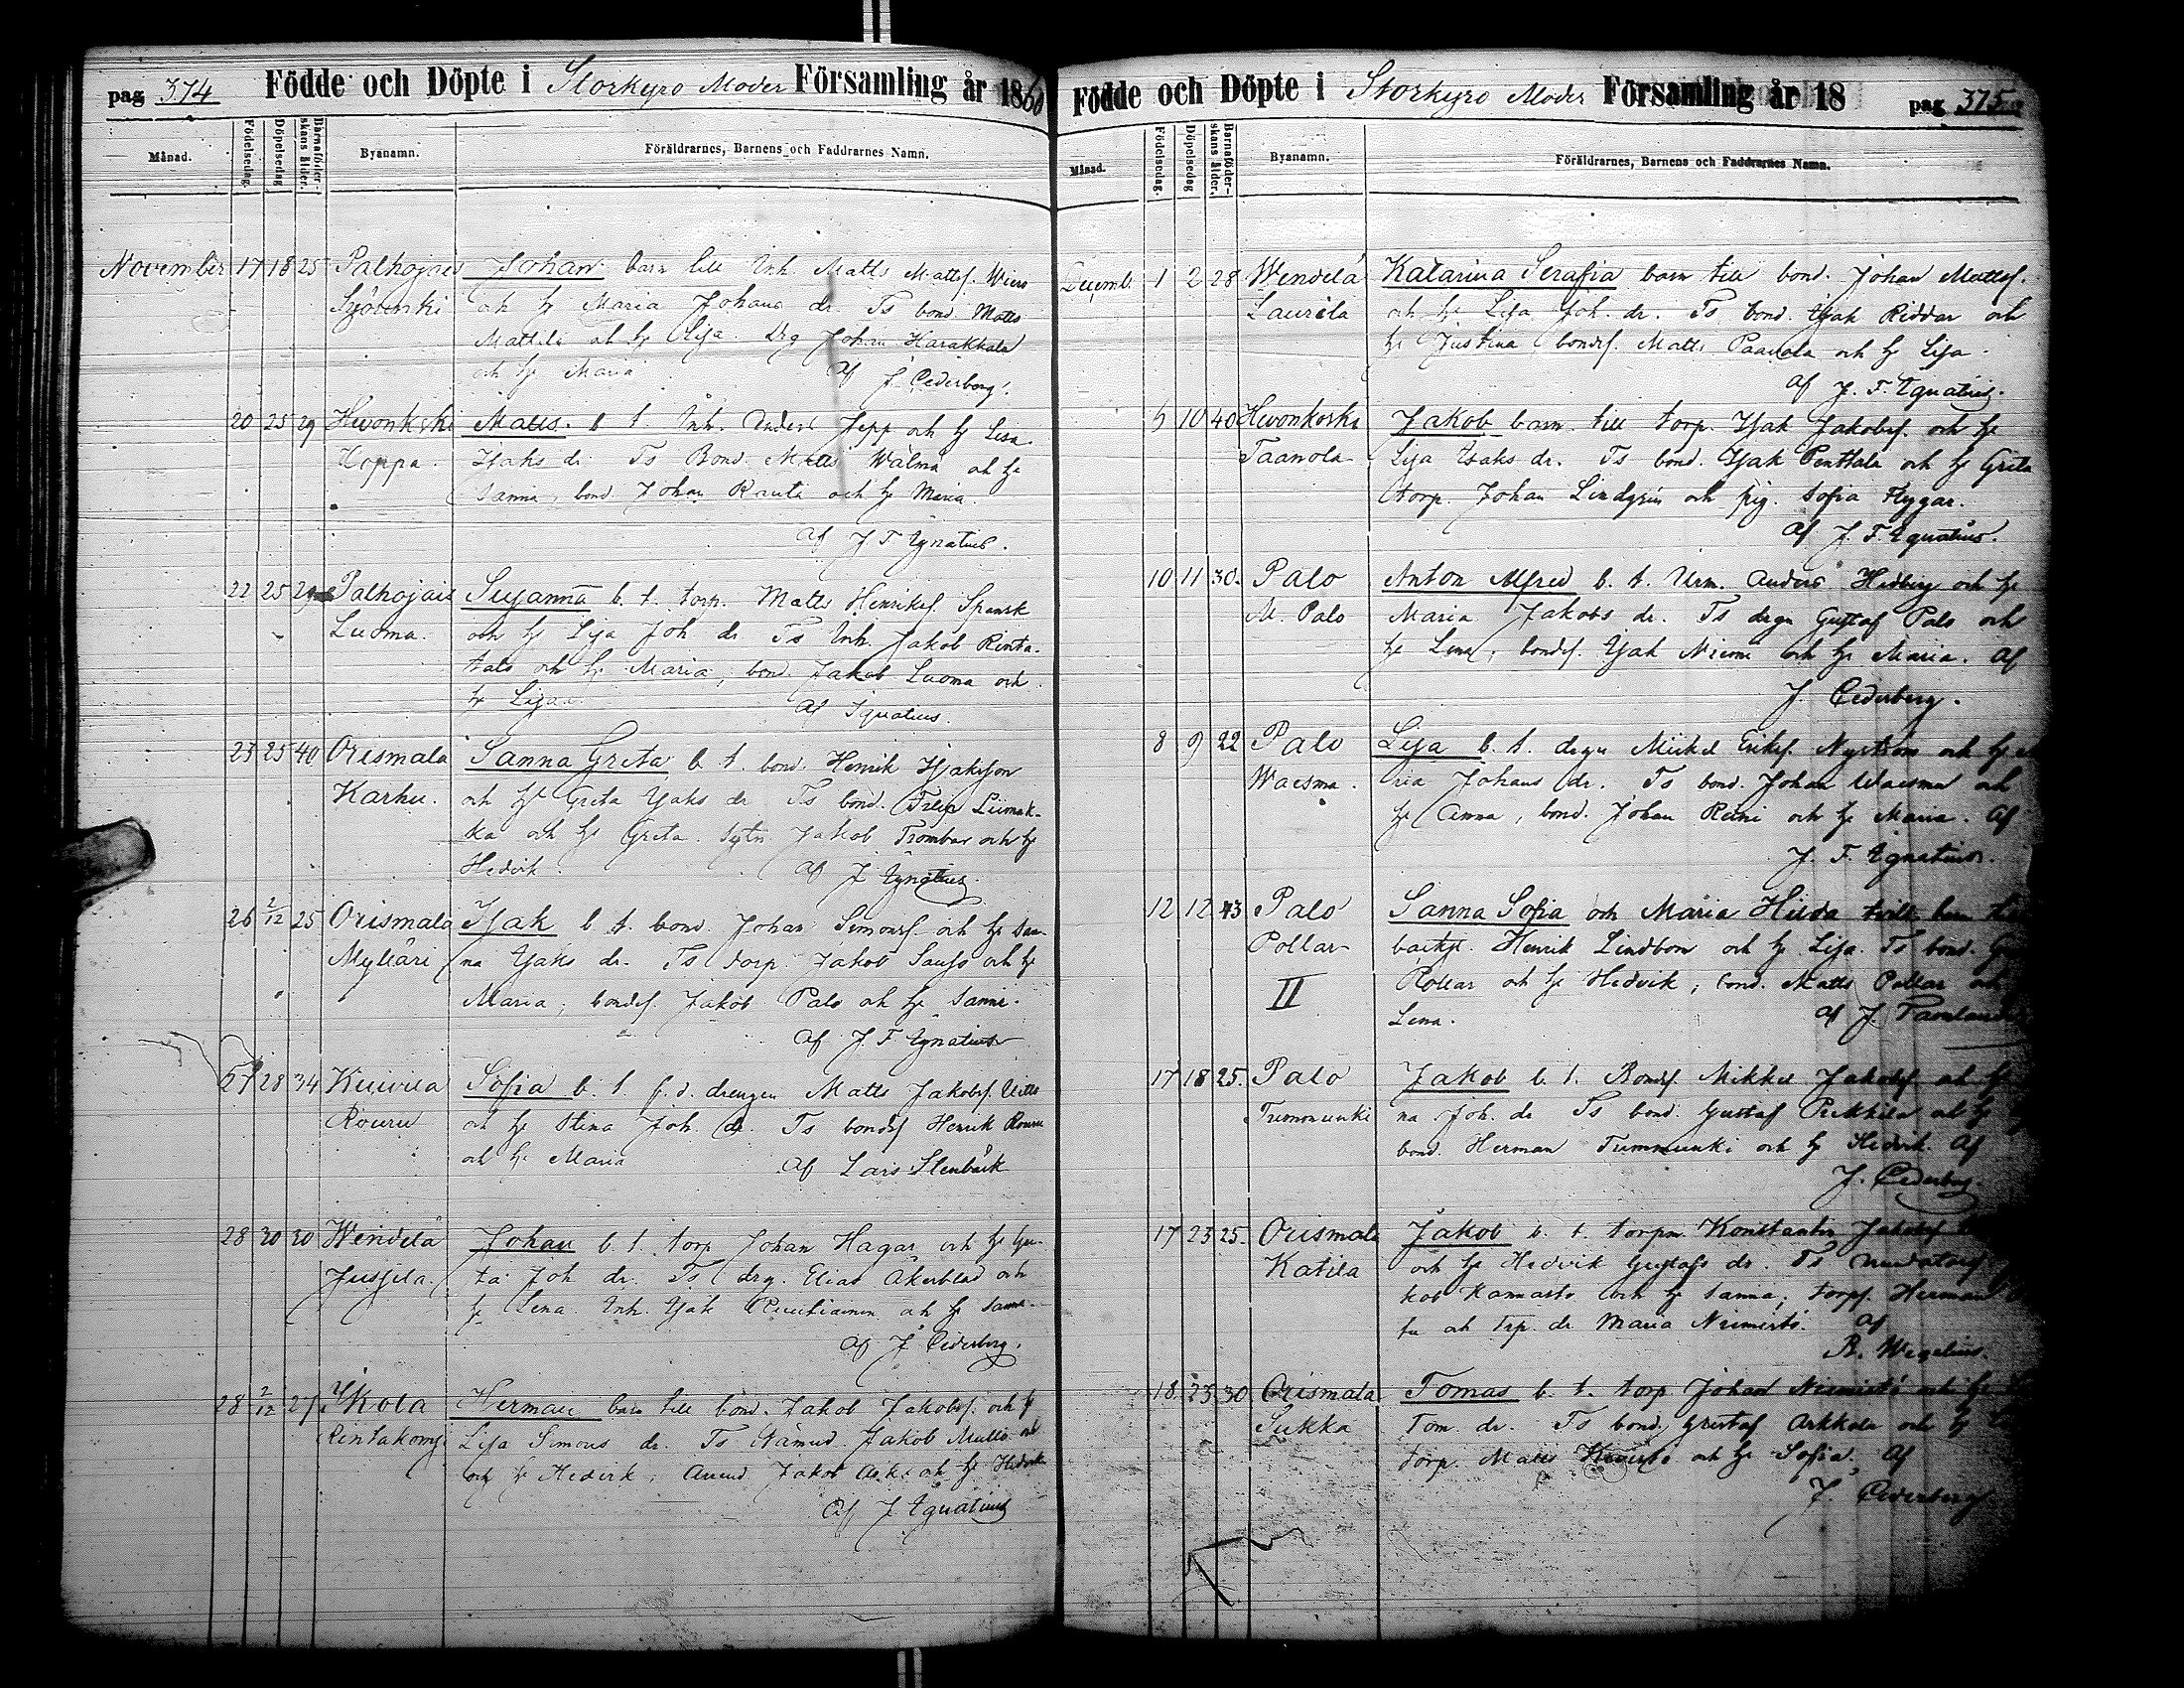 pag 374 Födde och Döpte i Storkyro Moder Församling år 1860
Månad. Födelsedag. Döpelsedag Barnaföderskans ålder. Byanamn. Föräldrarnes, Barnens och Faddrarnes Namn.
November 17 18 25 Palhojais Johan barn till Inh. Matts Mattsf.
och h Maria Johans dr. Ts bond. Matts
Mattila och h Lisa. Drg Johan Harakkala
och h Maria Af J Cederberg.
20 25 29 Matts. b t. Inh. Jepp och h Lisa
Hoppa. Isaks dr. Ts Bond. Matts Wälmä och h
Sanna, bond. Johan Rauta och h Maria.
Af J F Ignatius.
22 25 29 Palhojais Susanna b. t. torp. Matts Henriksf. Spansk
Luoma. och h Lisa Joh dr Ts Inh. Jakob Rinta-
talo och h Maria, bond Jakob Luoma och
h Lisa. Af Ignatius.
23 25 40 Orismala Sanna Greta b t. bond. Henrik Isaksson
Karhu. och h Greta Isaks dr Ts bond. Filip Liimak-
ka och h Greta. Sytn. Jakob Trombar och h
Hedvik. Af J Ignatius.
26 2/12 25 Orismala Isak b t. bond. Johan Simonsf. och h San-
Mylläri na Isaks dr. Ts torp. Jakob och h
Maria, bondes. Jakob Palo och h Sanna.
Af J. F Ignatius
27 28 34 Kuivila Sofia b. t. f. d. drengen Matts Jakobsf.
Rouru och h Stina Joh. dr. Ts bondes Henrik Rouru
och h Maria Af Lars Stenbäck
28 30 30 Wendelä Johan b. t. torp Johan Hagar och h Gre-
Jussila. ta Joh dr. Ts drg. Elias Åkerblad och
h Lena. Inh. Isak och h Sanna.
Af J Cederberg.
28 2/12 27 Ikola Herman barn till bond. Jakob Jakobsf. och h
Lisa Simons dr. Ts Nämnd. Jakob
och h Hedvik, Jakob och h Hedvik
Af J Ignatius
Födde och Döpte i Storkyro Moder Församling år 18 pag 375
Månad. Födelsedag. Döpelsedag Barnaföderskans ålder. Byanamn. Föräldrarnes, Barnens och Faddrarnes Namn.
Decemb. 1 2 28 Wendelä Katarina Serafia barn till bond. Johan Mattsf.
Laurila och h Lisa Joh. dr. Ts bond. Isak Riddar och
h Justina, bondes. Matts Paavola och h Lisa.
Af J. F. Ignatius.
5 10 40 Hevonkoski Jakob barn till torp. Isak Jakobsf. och h
Taanola Lisa Isaks dr. Ts bond. Isak Penttala och h Greta
torp. Johan Lindgrén och pig. Sofia Flygar.
Af J. F. Ignatius.
10 11 30. Palo Anton Alfred b. t. Urm. Anders Hedberg och h
M. Palo Maria Jakobs dr. Ts drgn Gustaf Palo och
h Lena, bondes. Isak Niemi och h Maria. Af
J. Cederberg.
8 9 22 Palo Lisa b. t. drgn Mickel Eriksf. Nyström och h
Waisma. ria Johans dr. Ts bond. Johan Waisma och
h Anna, bond. Johan Reini och h Maria. Af
J. F. Ignatius.
12 12 43 Palo Sanna Sofia och Maria Hilda tvill. barn
Pollar Henrik Lindbom och h Lisa. Ts bond.
II Pollar och h Hedvik, bond. Matts Pollar och
Lena. Af J.
17 18 25. Palo Jakob b. t. Bondes. Mikkel Jakobsf. och h
Tummunki na Joh. dr Ts bond. Gustaf Pukkila och h
bond. Herman Tummunki och h Hedvik. Af
J. Cederberg.
17 23 25. Orismala Jakob b. t. torpn Konstantin Jakobsf
Katila och h Hedvik Gustafs dr. Ts
kob och h Sanna, torps. Herman
och trp. dr Maria Niemistö. Af
B. Wegelius.
18. 23 30 Orismala Tomas b. t. torp Johan Niemistö och h
Sukka Tom. dr. Ts bond. Gustaf Arkkola och h
torp. Matts och h Sofia. Af
J. Cederberg